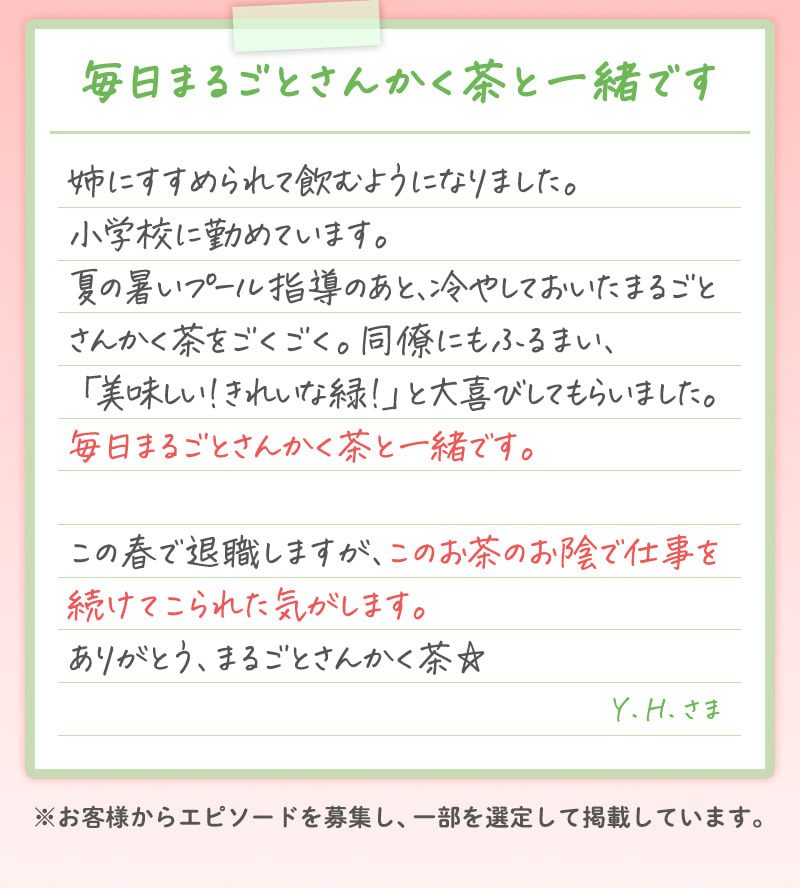 毎日まるごとさんかく茶と一緒です
姉にすすめられて飲むようになりました。
小学校に勤めています。
夏の暑いプール指導のあと、冷やしておいたまるごと
さんかく茶をごくごく。同僚にもふるまい、
「美味しい!きれいな緑!」と大喜びしてもらいました。
毎日まるごとさんかく茶と一緒です。
この春で退職しますが、このお茶のお陰で仕事を
続けてこられた気がします。
ありがとう、まるごとさんかく茶☆
Y.H.さま
※お客様からエピソードを募集し、一部を選定して掲載しています。